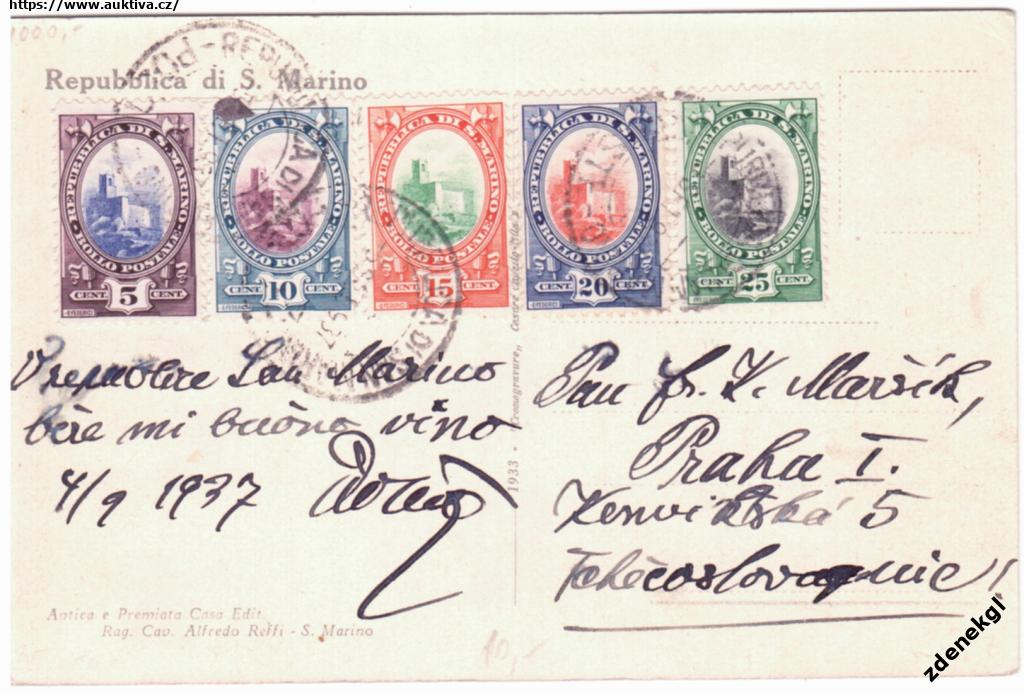 https://www.auktiva.cz/
1000,-
Repubblica di S. Marino
REPUBBLICA DI S. MARINO
BOLLO POSTALE
CENT. 5 CENT.
REPUBBLICA DI S. MARINO
BOLLO POSTALE
CENT. 10 CENT.
REPUBBLICA DI S. MARINO
BOLLO POSTALE
CENT. 15 CENT.
REPUBBLICA DI S. MARINO
BOLLO POSTALE
CENT. 20 CENT.
REPUBBLICA DI S. MARINO
BOLLO POSTALE
CENT. 25 CENT.
V republice San Marino
bere mi buono vino
4/9 1937
1933
Pan fr. K. Maršík,
Praha I.
5
Tchécoslovaquie!
Antica e Premiata Casa Edit.
Rag. Cav. Alfredo Reffi - S. Marino
10,-
zdenekgl